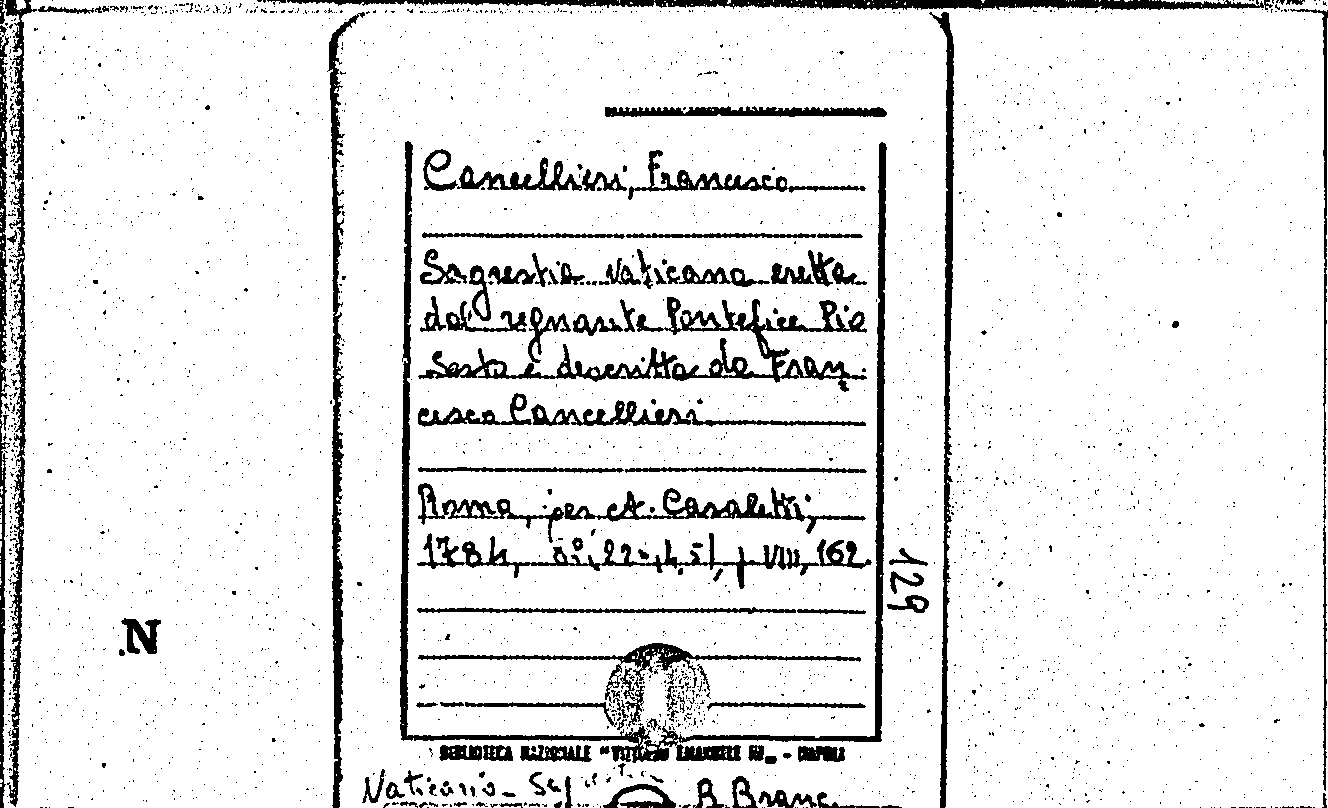 Cancellieri, Francesco
Sagrestia Vaticana eretta
dal regnante Pontefice Pio
Sesto e descritta da Fran-
cesco Cancellieri
Roma, per A. Casaletti,
1784, 8°, 22 , p. VIII, 162.
129
N
BIBLIOTECA NAZIONALE "VITTORIO EMANUELE III" - NAPOLI
Vaticano - B. Branc.